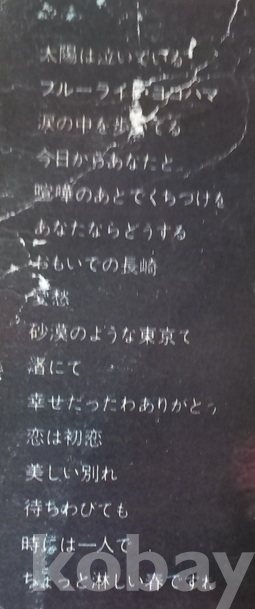 太陽は泣いている
ブルーライト・ヨコハマ
涙の中を歩いてる
今日からあなたと
喧嘩のあとでくちづけを
あなたならどうする
おもいでの長崎
憂愁
砂漠のような東京で
渚にて
幸せだったわありがとう
恋は初恋
美しい別れ
待ちわびても
時には一人で
ちょっと淋しい春ですね
kobay